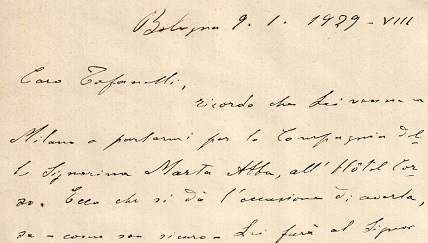 Bologna 9. 1. 1929 - VIII
Caro Tofanelli,
ricordo che Lei venne a
Milano a parlarmi per la Compagnia del-
la Signorina Marta Abba, all'Hôtel Cor-
so. Ecco che si dà l'occasione di averla,
se - come son sicuro - Lei farà al Signor